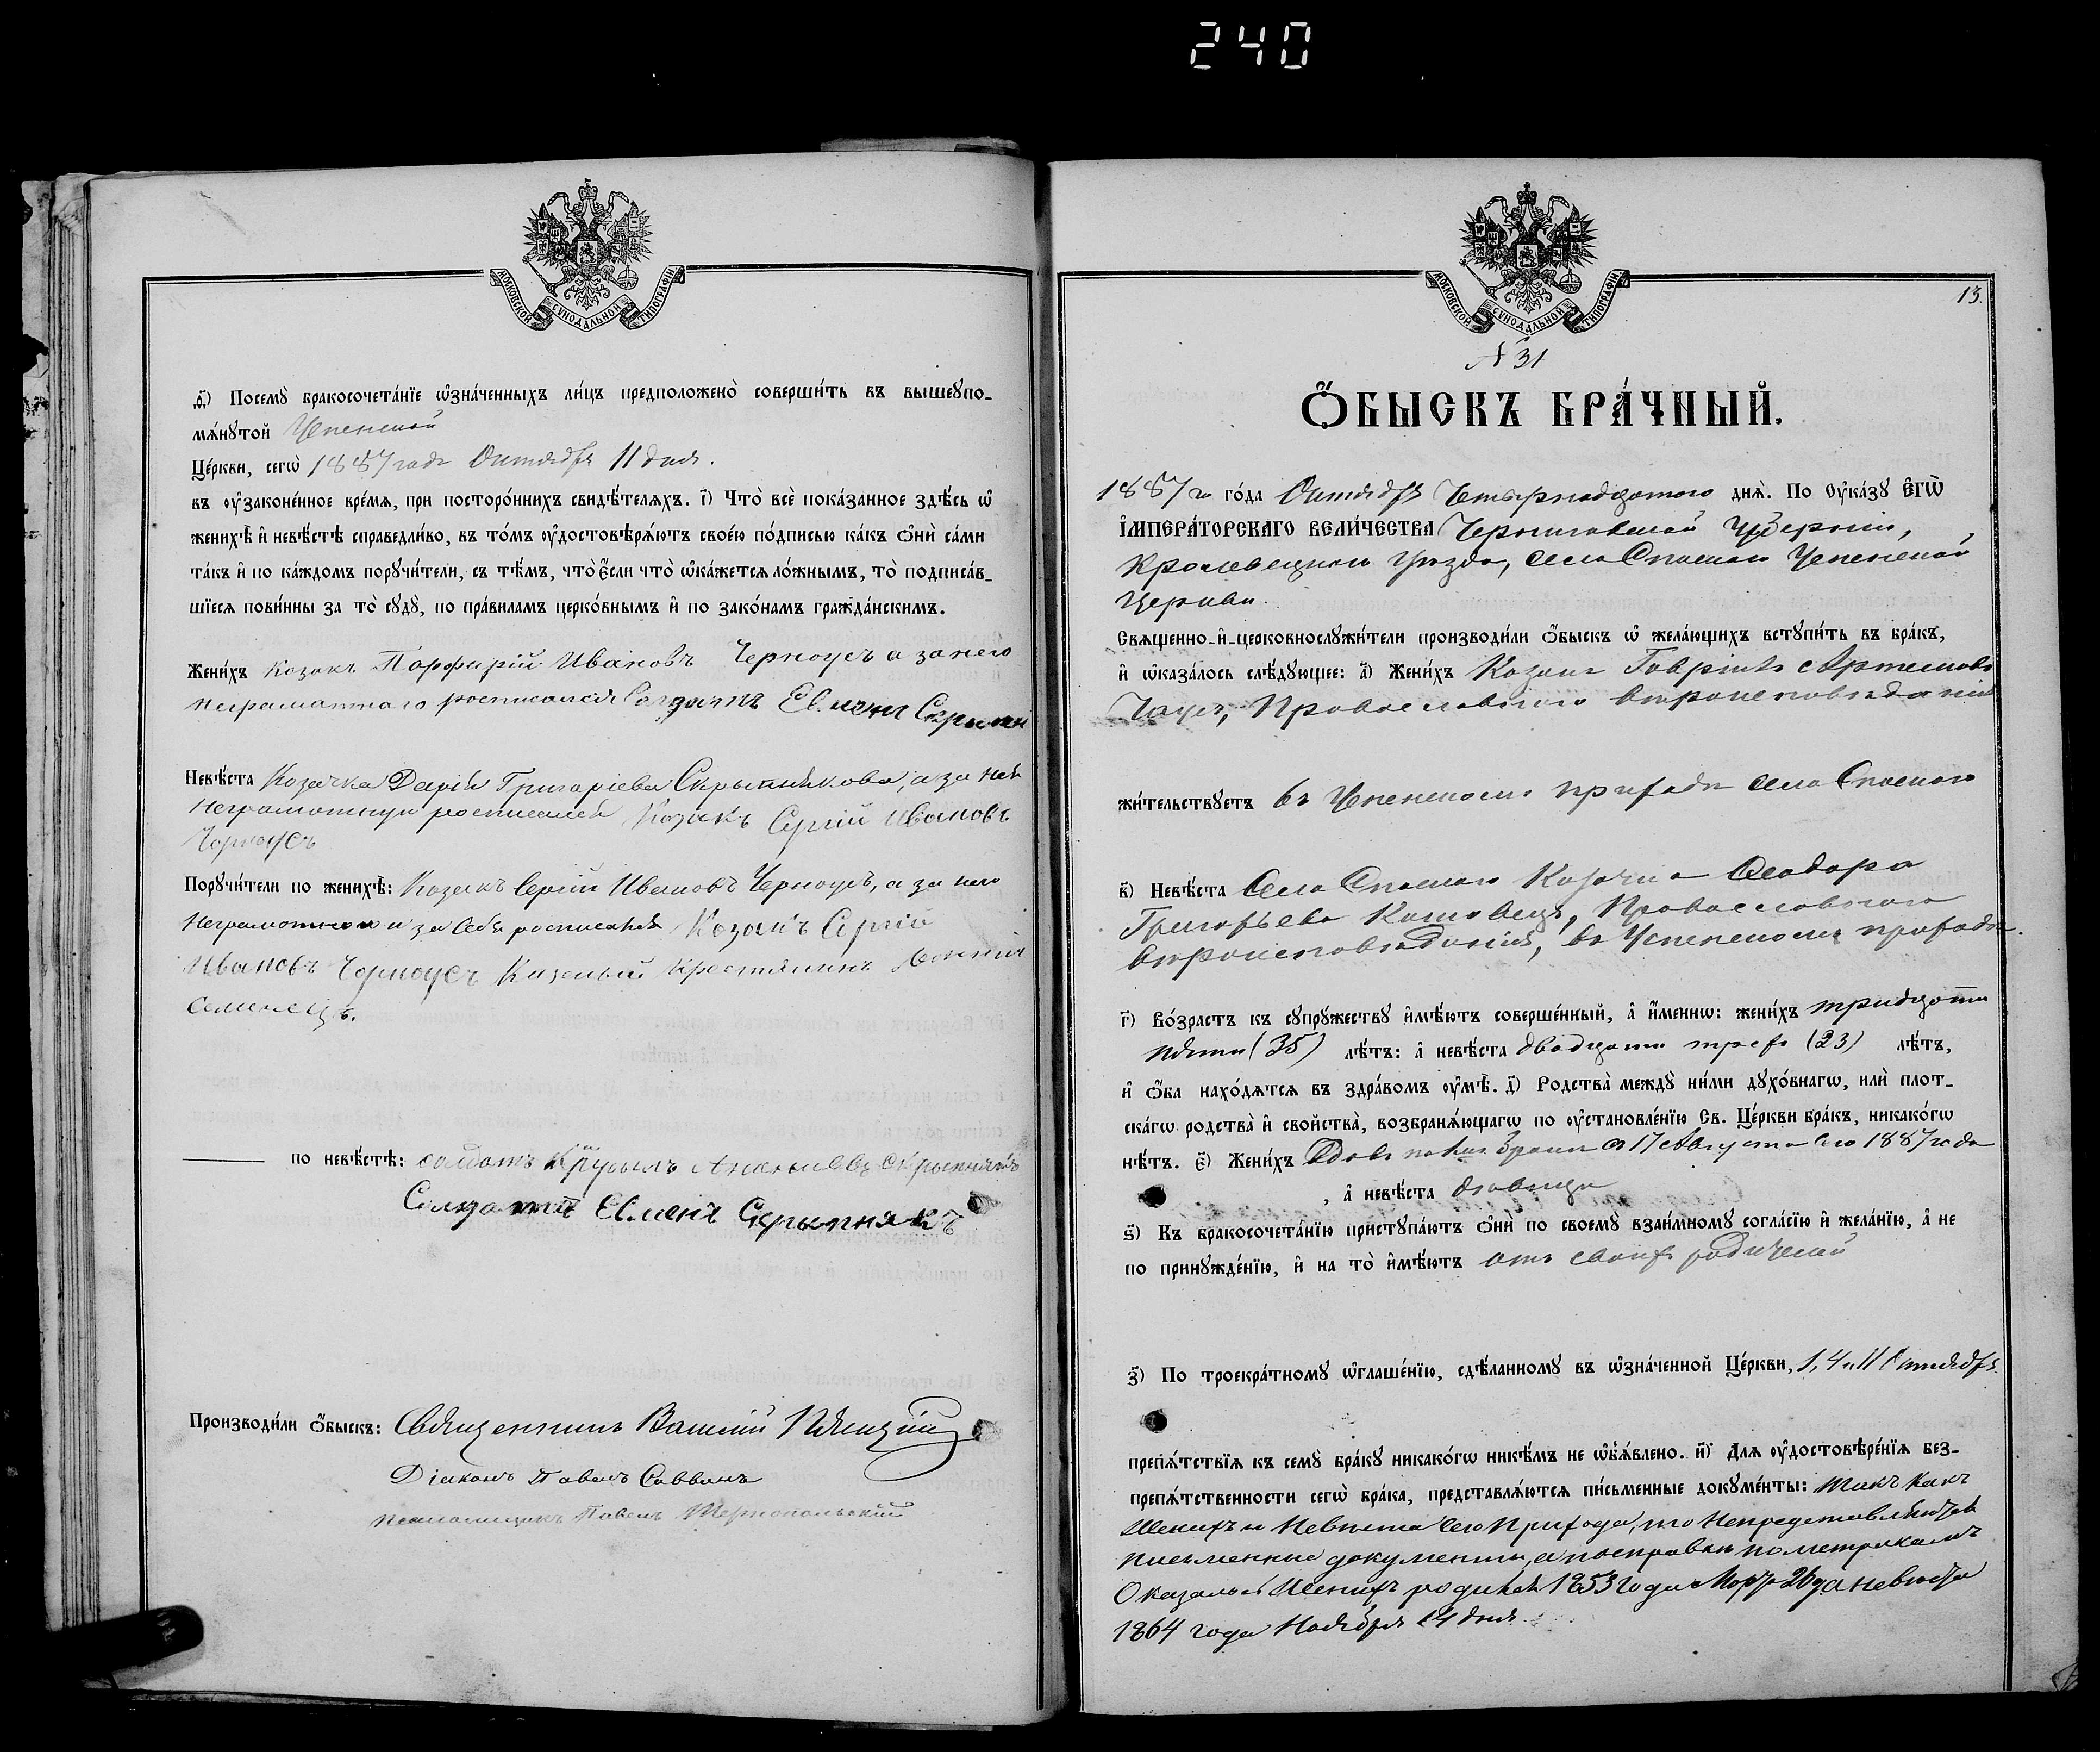 240
МОСКОВСКОЙ СѴНОДАЛЬНОЙ ТИПОГРАФІИ
ѳ҃) Посемꙋ̀ бракосочета́нїе ѡ҆зна́ченныхъ ли́цъ предположено̀ соверши́ть въ вышеꙋпо-
мѧ́нꙋтой Успенской
Це́ркви, сегѡ̀ 1887 года Октября 11 дня.
въ ᲂу҆законе́нное вре́мѧ, при посторо́ннихъ свидѣ́телѧхъ. і҃) Что̀ всѐ пока́занное здѣ́сь ѡ҆
женихѣ̀ и҆ невѣ́стѣ справедли́во, въ то́мъ ᲂу҆достовѣрѧ́ютъ свое́ю по́дписью ка́къ ѻ҆нѝ са́ми
та́къ и҆ по ка́ждомъ порꙋчи́тели, съ тѣ́мъ, что̀ є҆́сли что̀ ѡ҆ка́жетсѧ ло́жнымъ, то̀ подписа́в-
шїесѧ пови́нны за то̀ сꙋдꙋ̀, по пра́виламъ церко́внымъ и҆ по зако́намъ гражда́нскимъ.
Жени́хъ козакъ Порфирій Ивановъ Черноусъ а за него
неграмотнаго росписался Солдатъ Евменъ Скрыпн
Невѣ́ста Козачка Дарія Григоріева Скрыпникова, а за нея
неграмотную росписался Козакъ Сергій Ивановъ
Чорноусъ
Порꙋчи́тели по женихѣ̀: Козакъ Сергій Ивановъ Черноусъ, а за него
неграмотного и за себя росписался Козакъ Сергій
Ивановъ Чорноусъ Казеный крестянинъ
Семенецъ.
по невѣ́стѣ: солдатъ Ананьевъ Скрыпникъ
Солдатъ Евменъ Скрыпнякъ
Производи́ли ѻ҆́быскъ: Священникъ Василій
Діаконъ Павелъ Саввинъ
Псаломщикъ Павелъ Тернопольскій
13.
N 31
Ѻ҆́БЫСКЪ БРА́ЧНЫЙ.
1887 го го́да Октября Четырнадцатого днѧ̀. По ᲂу҆ка́зꙋ Є҆ГѠ̀
І҆МПЕРА́ТОРСКАГО ВЕЛИ́ЧЕСТВА Черниговской Губерніи,
Кролевецкого уѣзда, села Спаского Успенской
Церкви
Сващенно-и҆-церковнослꙋжи́тели производи́ли ѻ҆́быскъ ѡ҆ жела́ющихъ встꙋпи́ть въ бра́къ,
и҆ ѡ҆каза́лось слѣ́дꙋющее: а҃) Жени́хъ Козакъ Гавріилъ Артемовъ
Православного вѣроисповѣданія
жи́тельствꙋетъ въ Успенскомъ приходѣ села Спаского
в҃) Невѣ́ста Села Спаского Козачка Феодора
Григорьева Православного
вѣроисповѣданія, въ Успенскомъ приходѣ.
г҃) Во́зрастъ къ сꙋпрꙋ́жествꙋ и҆мѣ́ютъ соверше́нный, а҆ и҆́меннѡ: жени́хъ тридцати
пяти (35) лѣ́тъ: а҆ невѣ́ста двадцати трехъ (23) лѣ́тъ,
и҆ ѻ҆́ба нахо́дѧтсѧ въ здра́вомъ ᲂу҆мѣ̀. д҃) Родства̀ междꙋ̀ ни́ми дꙋхо́внагѡ, илѝ плот-
ска́гѡ родства̀ и҆ свойства̀, возбранѧ́ющагѡ по ᲂу҆становле́нїю Св. Це́ркви бра́къ, никако́гѡ
нѣ́тъ. є҃) Жени́хъ Вдовъ брака съ 17 Августа сего 1887 года
, а҆ невѣ́ста дѣвица
ѕ҃) Къ бракосочета́нїю пристꙋпа́ютъ ѻ҆нѝ по своемꙋ̀ взаи́мномꙋ согла́сїю и҆ жела́нїю, а҆ не
по принꙋжде́нїю, и҆ на то̀ и҆мѣ́ютъ отъ своихъ родителей
з҃) По троекра́тномꙋ ѡ҆глаше́нїю, сдѣ́ланномꙋ въ ѡ҆зна́ченной Це́ркви, 1, 4 и 11 Октября
препѧ́тствїѧ къ семꙋ̀ бра́кꙋ никако́гѡ никѣ́мъ не ѡ҆б̾ѧ́влено. и҃) Длѧ ᲂу҆достовѣре́нїѧ без-
препѧ́тственности сегѡ̀ бра́ка, представлѧ́ютсѧ пи́сьменные докꙋме́нты: такъ какъ
Женихъ и Невѣста сего прихода, то непредставляются
письменные документы, а посправкѣ пометрикамъ
Оказалось Женихъ родился 1853 года Март 26 д а невѣста
1864 года Ноября 14 дня.